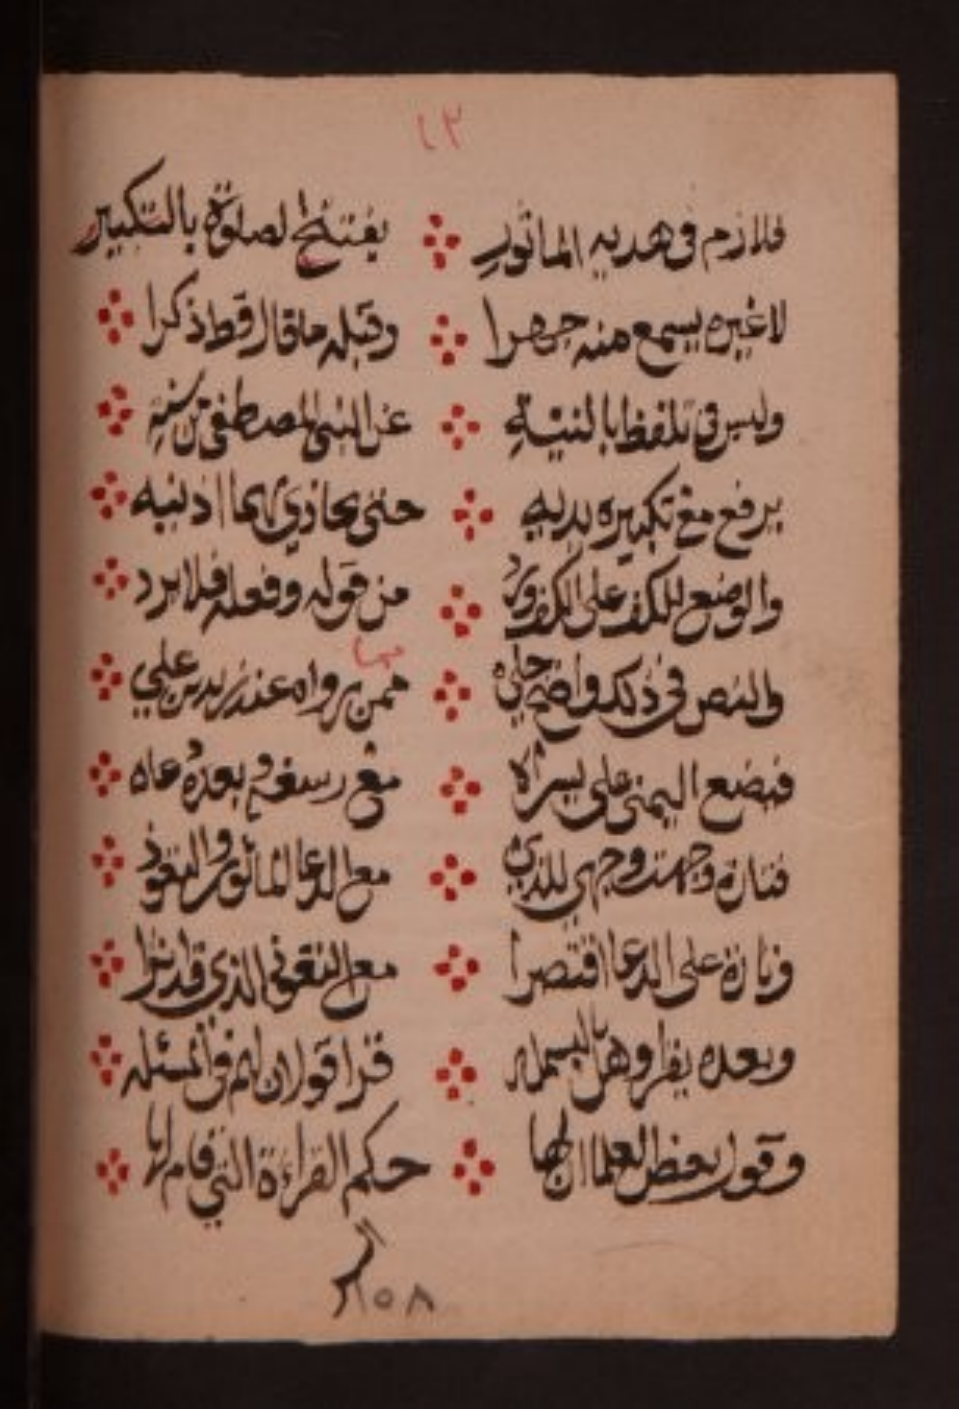 ١٢
فلازم في هديه الماثور يفتتح الصلوة بالتكبير
لا غيره يسمع منه جهرا وقبله ما قال قط ذكرا
وليس في تلفظ بالنية عن النبي المصطفى من سنة
يرفع مع تكبيره يديه حتى يحاذي بهما اذنيه
والوضع للكف على الكف ورد من قوله وفعله فلا يرد
والنص في ذلك واضح جلي ممن يرواه عند زيد بن علي
فيضع اليمنى على يسراه
فتارة وجهت وجهي للذي مع الدعا الماثور والتعوذ
وتارة على الدعا اقتصرا مع التعوذ الذي قد
وبعده يقرا وهل بسمله قرا قولان لهم في المسئله
وقول بعض العلما ان لها حكم القراءة التي قام لها
١٥٨